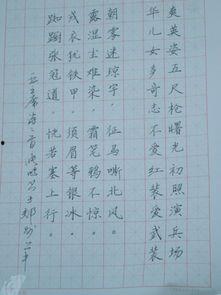 爽英姿五尺枪曙光初照演兵场
华儿女多奇志不爱红装爱武装
朝雾迷琼宇·征马嘶北风·
露湿尘难染·霜笼鸦不惊·
戎衣犹铁甲·须眉等银冰·
踟蹰张冠道·恍若塞上行·